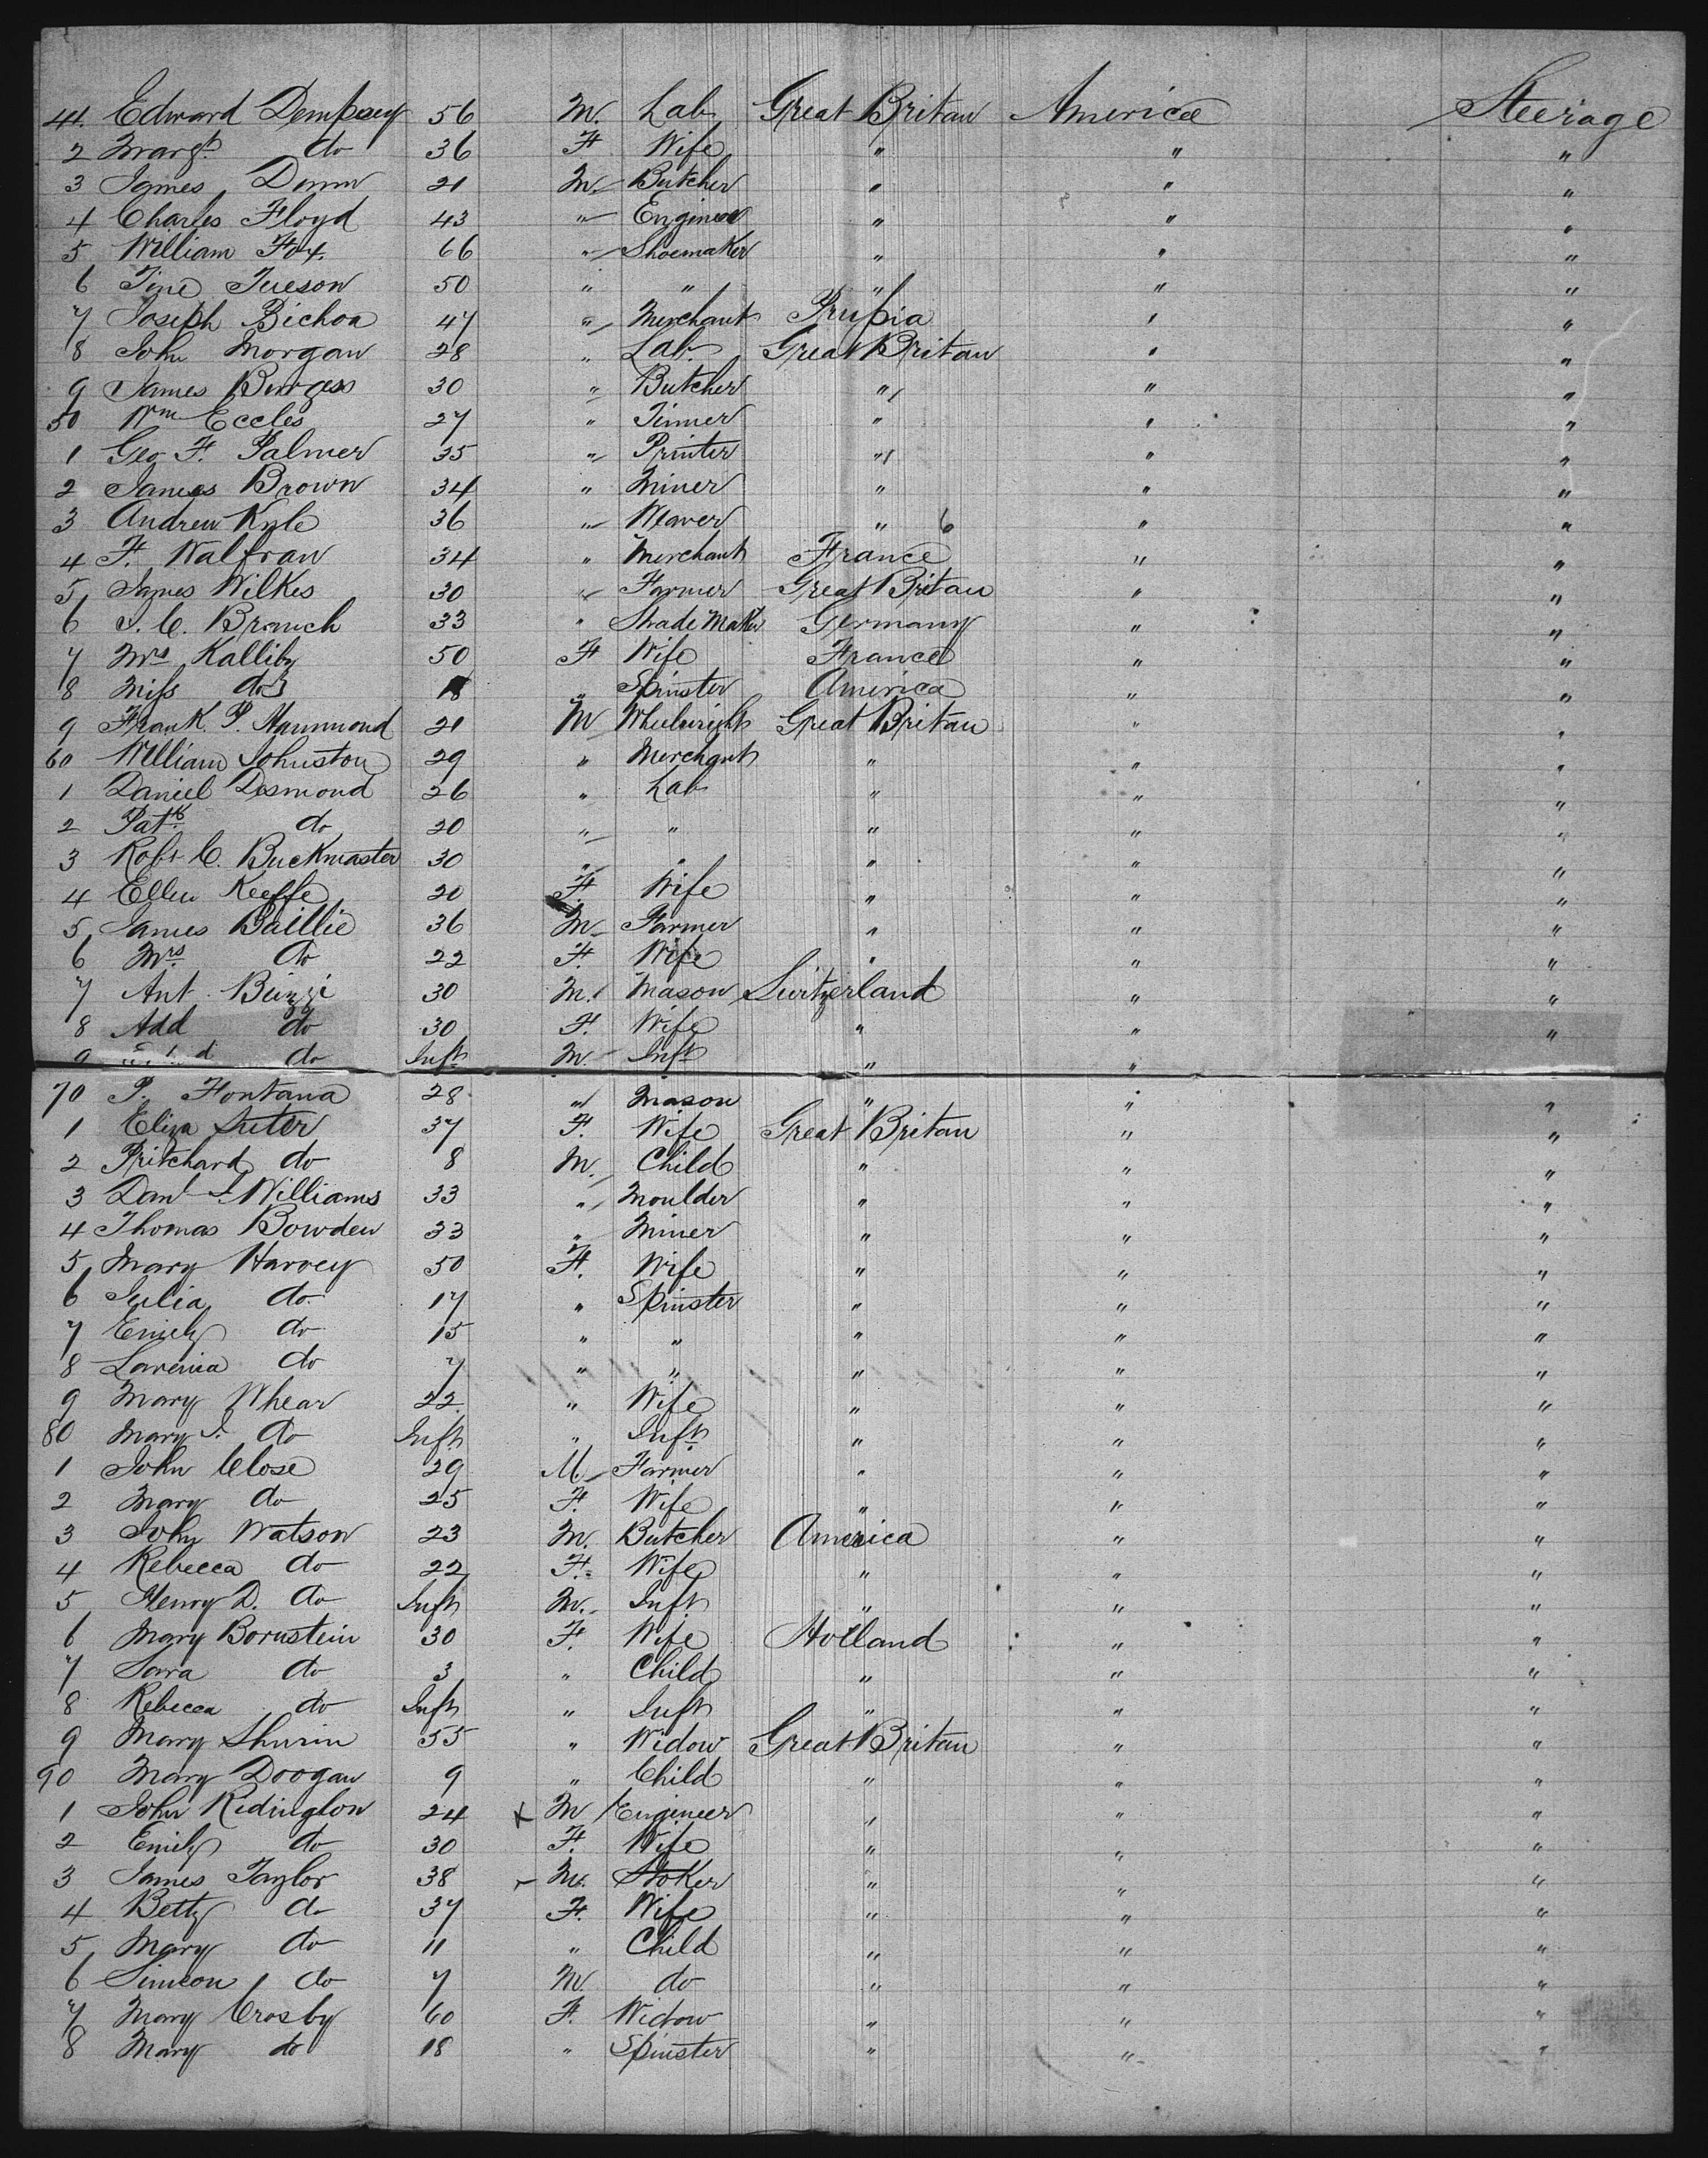 41. Edward Dempsey 56 M. Lab Great Britan America Steerage
2 Margt. do 36 F Wife " " "
3 James Dann 21 M. Butcher " " "
4 Charles Floyd 43 " Engineer " " "
5 William Fox 66 " Shoemaker " " "
6 50 " " " " "
7 Joseph Bichoa 47 " Merchant Prussia " "
8 John Morgan 28 " Lab. Great Britan " "
9 James Burgess 30 " Butcher " " "
50 Wm Eccles 27 " Tinner " " "
1 Geo F. Palmer 35 " Printer " " "
2 James Brown 34 " Miner " " "
3 Andrew Kyle 36 " Weaver " 6 " "
4 F. Walfran 34 " Merchant France " "
5 James Wilkes 30 " Farmer Great Britan " "
6 J. C. Branch 33 " Shade Maker Germany " "
7 Mrs Kalliby 50 F Wife France " "
8 Miss do 18 " Spinster America " "
9 Frank. P. Hammond 21 M Wheelwright Great Britan " "
60 William Johnston 29 " Merchant " " "
1 Daniel Desmond 26 " Lab " " "
2 Patk. do 20 " " " " "
3 Robt C. Buckmaster 30 " " " " "
4 Ellen Keeffe 20 F Wife " " "
5 James Baillie 36 M Farmer " " "
6 Mrs. do 22 F. Wife " " "
7 Ant. Buzzi 30 M. Mason Switzerland " "
8 Add do 30 F. Wife " " "
9 do Inft M. Inft " "
70 P. Fontana 28 " Mason " " "
1 Eliza Suter 37 F. Wife Great Britan " "
2 Pritchard do 8 M. Child " " "
3 Danl J. Williams 33 " Moulder " " "
4 Thomas Bowden 33 " Miner " " "
5 Mary Harvey 50 F. Wife " " "
6 Julia do 17 " Spinster " " "
7 Emily do 15 " " " " "
8 Lavenia do 7 " " " " "
9 Mary Whear 22. " Wife " " "
80 Mary J. do Inft " Inft " " "
1 John Close 29 M. Farmer " " "
2 Mary do 25 F. Wife " " "
3 John Watson 23 M. Butcher America " "
4 Rebecca do 22 F. Wife " " "
5 Henry D. do Inft M. Inft " " "
6 Mary Bornstein 30 F. Wife Holland " "
7 Sara do 3 " Child " " "
8 Rebecca do Inft " Inft " " "
9 Mary Shurin 55 " Widow Great Britan " "
90 Mary Doogan 9 " Child " " "
1 John Ridington 24 x M Engineer " " "
2 Emily do 30 F. Wife " " "
3 James Taylor 38 - M. Stoker " " "
4 Betty do 37 F. Wife " " "
5 Mary do 11 " Child " " "
6 Simeon do 7 M. do " " "
7 Mary Crosby 60 F. Widow " " "
8 Mary do 18 " Spinster " " "